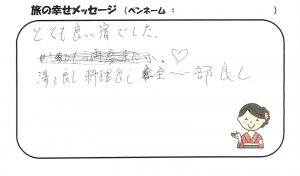 旅の幸せメッセージ (ペンネーム: )
とても良い宿でした。
湯も良し料理良し全〜部良し